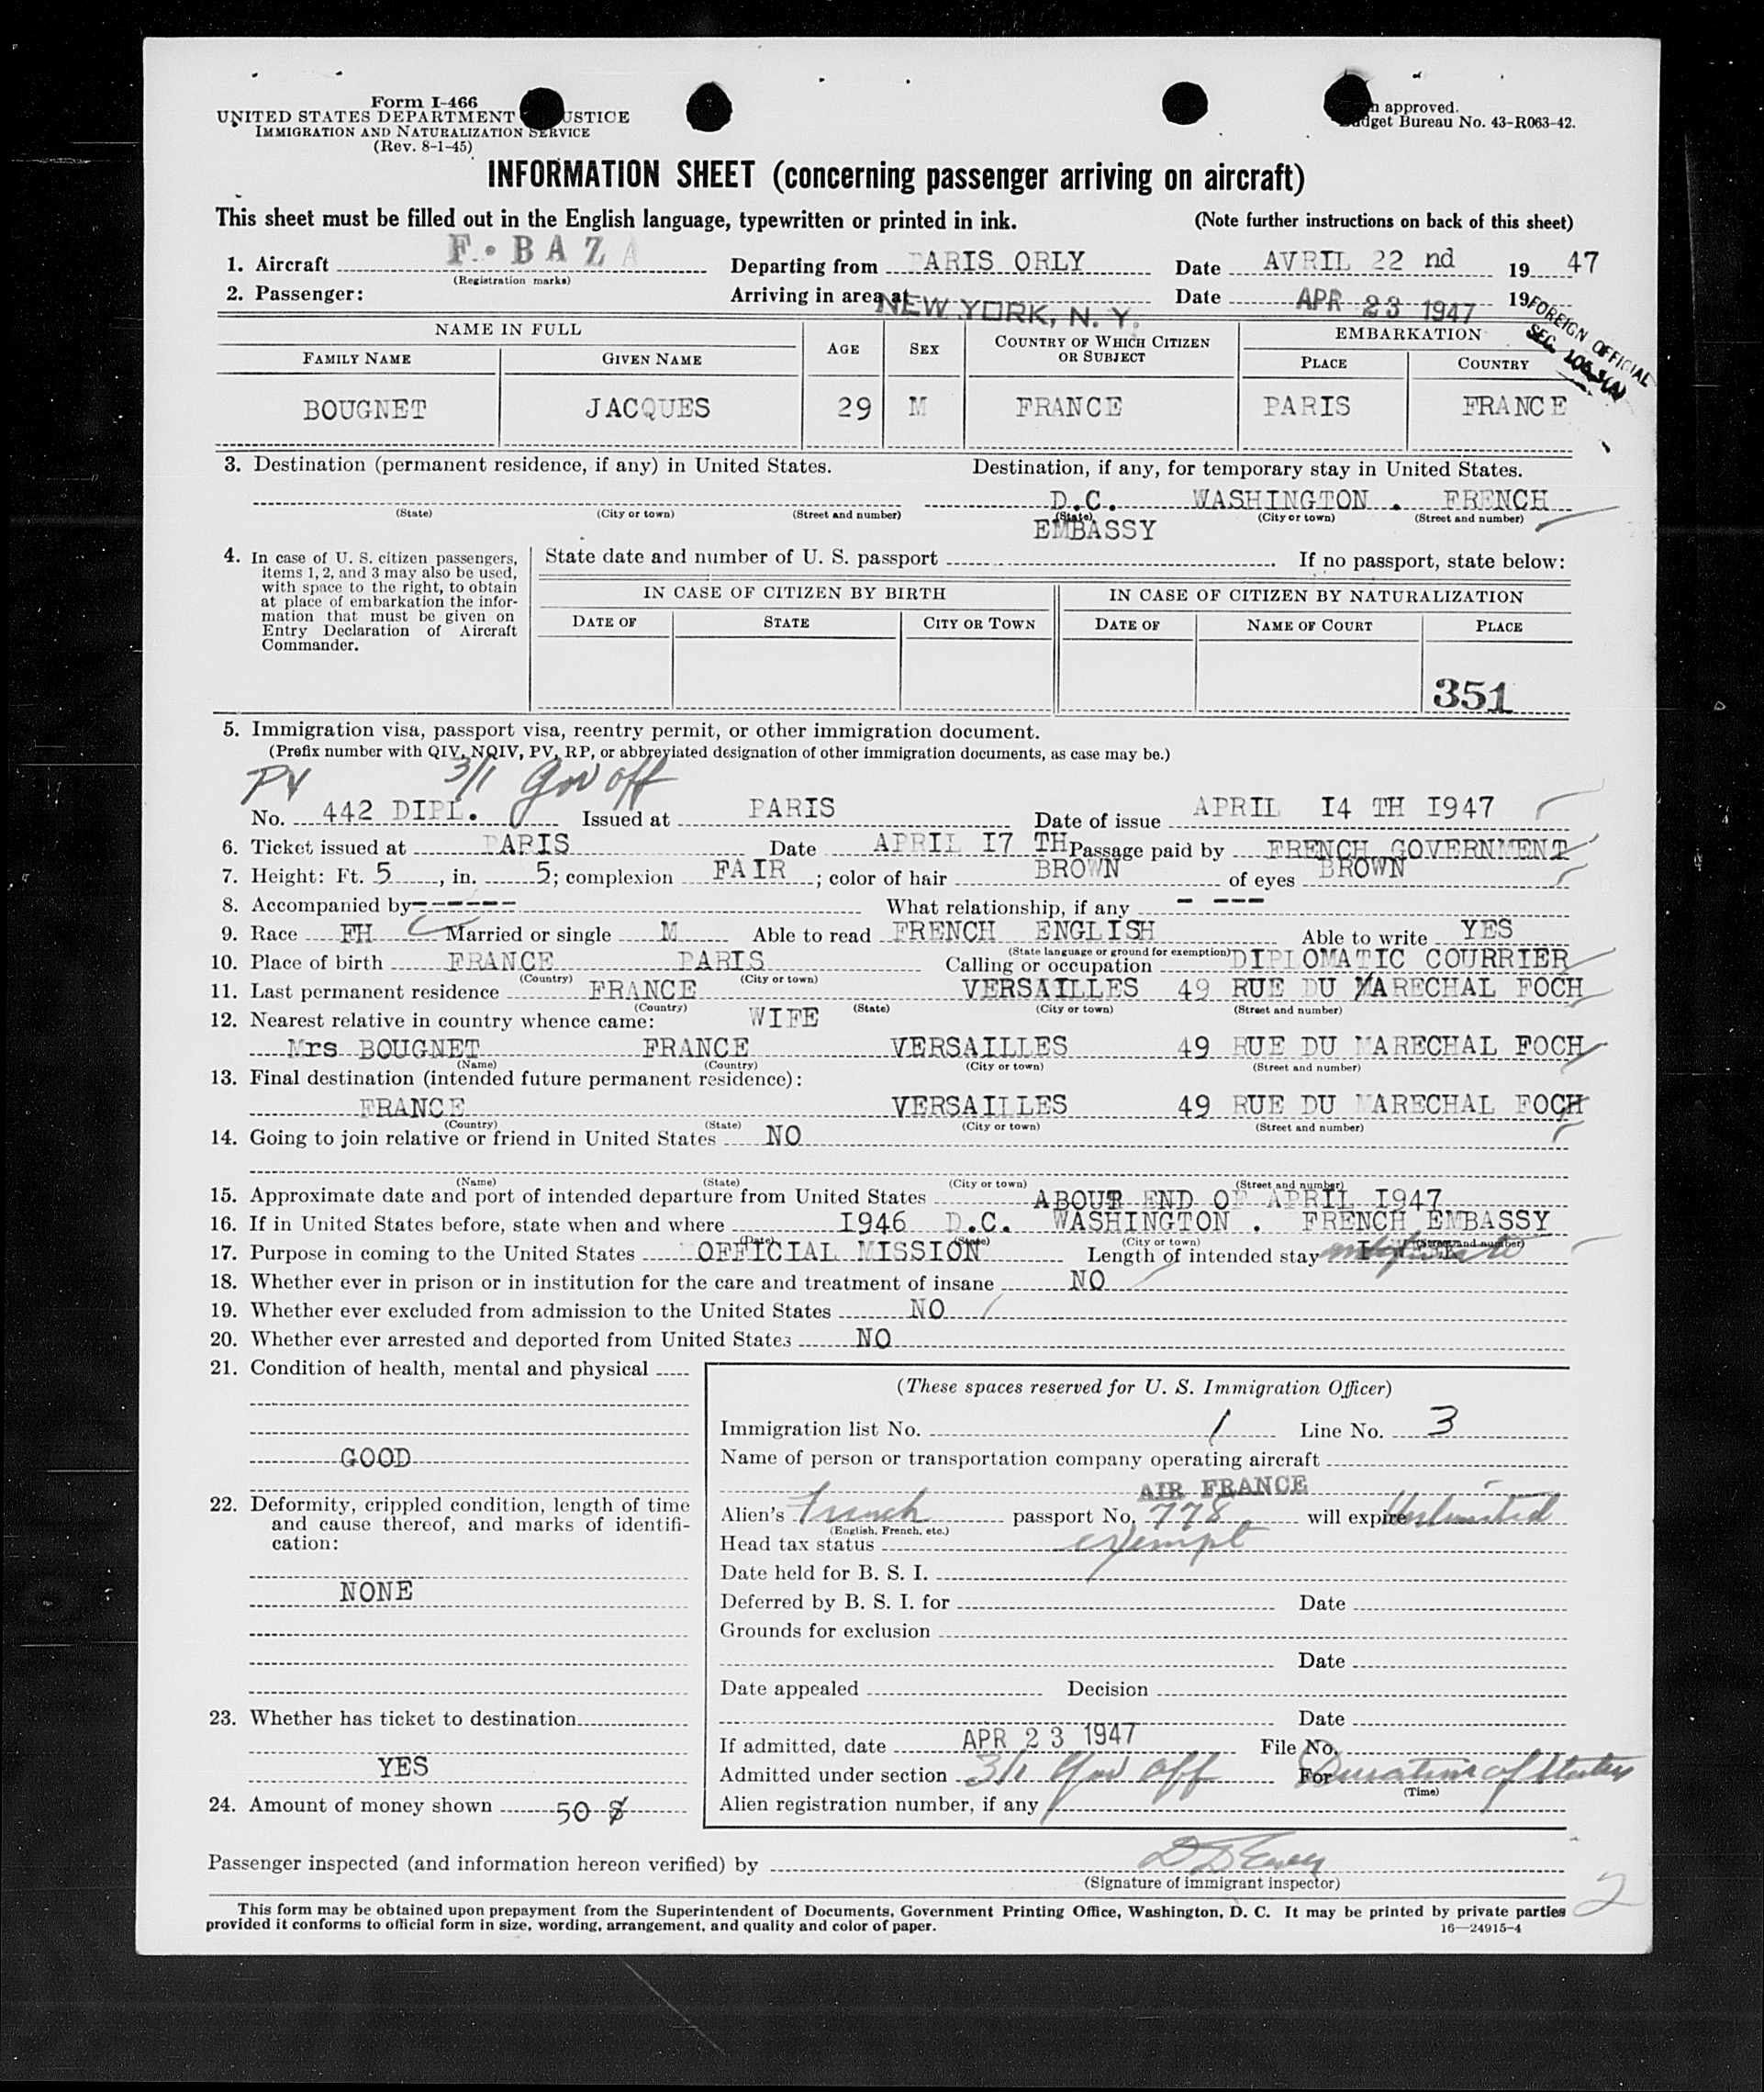 Form I-466
UNITED STATES DEPARTMENT USTICE
IMMIGRATION AND NATURALIZATION SERVICE
(Rev. 8-1-45)
approved.
dget Bureau No. 43-R063-42.
INFORMATION SHEET (concerning passenger arriving on aircraft)
This sheet must be filled out in the English language, typewritten or printed in ink. (Note further instructions on back of this sheet)
1. Aircraft F.BAZA Departing from PARIS ORLY Date AVRIL 22 nd 19 47
(Registration marks)
2. Passenger: Arriving in area at NEW YORK, N. Y. Date APR 23 1947 19
FOREIGN OFFICIAL
SEC.
NAME IN FULL AGE SEX COUNTRY OF WHICH CITIZEN OR SUBJECT EMBARKATION
FAMILY NAME GIVEN NAME PLACE COUNTRY
BOUGNET JACQUES 29 M FRANCE PARIS FRANCE
3. Destination (permanent residence, if any) in United States. Destination, if any, for temporary stay in United States.
D.C. WASHINGTON . FRENCH
(State) (City or town) (Street and number) (State) (City or town) (Street and number)
EMBASSY
4. In case of U. S. citizen passengers, items 1, 2, and 3 may also be used, with space to the right, to obtain at place of embarkation the information that must be given on Entry Declaration of Aircraft Commander.
State date and number of U. S. passport If no passport, state below:
IN CASE OF CITIZEN BY BIRTH IN CASE OF CITIZEN BY NATURALIZATION
DATE OF STATE CITY OR TOWN DATE OF NAME OF COURT PLACE
351
5. Immigration visa, passport visa, reentry permit, or other immigration document.
(Prefix number with QIV, NQIV, PV, RP, or abbreviated designation of other immigration documents, as case may be.)
PV 3/1 Gov off
No. 442 DIPL. Issued at PARIS Date of issue APRIL I4 TH I947
6. Ticket issued at PARIS Date APRIL I7 TH Passage paid by FRENCH GOVERNMENT
7. Height: Ft. 5, in. 5; complexion FAIR; color of hair BROWN of eyes BROWN
8. Accompanied by ------ What relationship, if any - ---
9. Race FH Married or single M Able to read FRENCH ENGLISH Able to write YES
(State language or ground for exemption)
10. Place of birth FRANCE PARIS Calling or occupation DIPLOMATIC COURRIER
(Country) (City or town)
11. Last permanent residence FRANCE VERSAILLES 49 RUE DU MARECHAL FOCH
(Country) (State) (City or town) (Street and number)
12. Nearest relative in country whence came: WIFE
Mrs BOUGNET FRANCE VERSAILLES 49 RUE DU MARECHAL FOCH
(Name) (Country) (City or town) (Street and number)
13. Final destination (intended future permanent residence):
FRANCE VERSAILLES 49 RUE DU MARECHAL FOCH
(Country) (State) (City or town) (Street and number)
14. Going to join relative or friend in United States NO
(Name) (State) (City or town) (Street and number)
15. Approximate date and port of intended departure from United States ABOUT END OF APRIL I947
16. If in United States before, state when and where I946 D.C. WASHINGTON . FRENCH EMBASSY
(Date) (State) (City or town) (Street and number)
17. Purpose in coming to the United States OFFICIAL MISSION Length of intended stay
18. Whether ever in prison or in institution for the care and treatment of insane NO
19. Whether ever excluded from admission to the United States NO
20. Whether ever arrested and deported from United States NO
21. Condition of health, mental and physical
GOOD
22. Deformity, crippled condition, length of time and cause thereof, and marks of identification:
NONE
23. Whether has ticket to destination
YES
24. Amount of money shown 50 $
(These spaces reserved for U. S. Immigration Officer)
Immigration list No. 1 Line No. 3
Name of person or transportation company operating aircraft
AIR FRANCE
Alien's French passport No. 778 will expire Unlimited
(English, French, etc.)
Head tax status exempt
Date held for B. S. I.
Deferred by B. S. I. for Date
Grounds for exclusion
Date
Date appealed Decision
Date
If admitted, date APR 23 1947 File No.
Admitted under section 3/1 Gov off For Duration of Status
(Time)
Alien registration number, if any
Passenger inspected (and information hereon verified) by
(Signature of immigrant inspector)
2
This form may be obtained upon prepayment from the Superintendent of Documents, Government Printing Office, Washington, D. C. It may be printed by private parties
provided it conforms to official form in size, wording, arrangement, and quality and color of paper. 16—24915-4